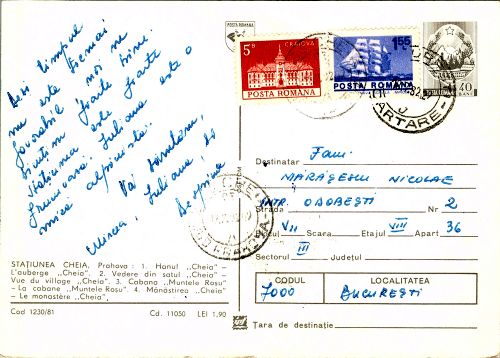 Deși timpul
nu este tocmai
favorabil noi ne
simțim foarte bine.
Stațiunea este foarte
frumoasă. Iuliana este o
mică alpinistă.
Vă sărutăm,
Mircea, Iuliana,
STAȚIUNEA CHEIA. Prahova: 1. Hanul „Cheia" –
L'auberge „Cheia". 2. Vedere din satul „Cheia" –
Vue du village „Cheia". 3. Cabana „Muntele Roșu"
– La cabane „Muntele Roșu". 4. Mănăstirea „Cheia"
– Le monastère „Cheia".
Cod 1230/81 Cd. 11050 LEI 1,90
POȘTA ROMÂNĂ
5B
CRAIOVA
POSTA ROMANA
1,55
POSTA ROMANA
40
Destinatar Fam.
MĂRĂȘESCU NICOLAE
Strada INTR. ODOBEȘTI Nr. 2
Blocul V11 Scara Etajul VIII Apart 36
Sectorul III Județul
CODUL LOCALITATEA
7000 BUCUREȘTI
Țara de destinație